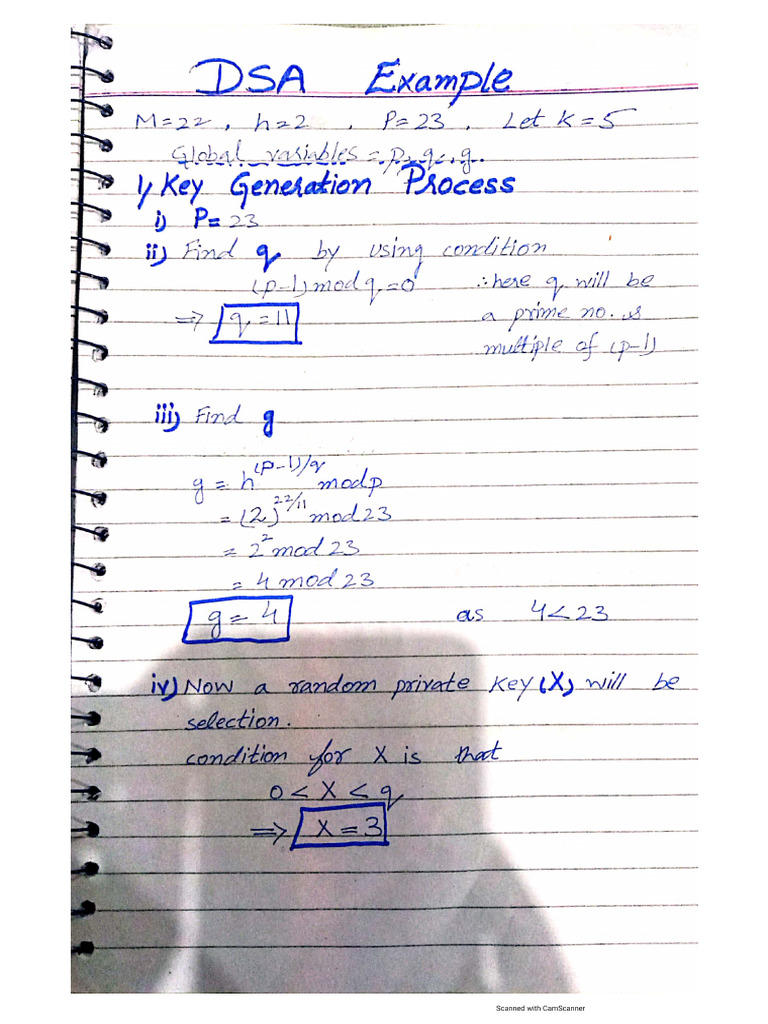 DSA Example
M=22, h=2, P=23, Let K=5
Global variables = p, q, g.
1, Key Generation Process
i) P= 23
ii) Find q by using condition
(p-1) mod q=0 ∴here q will be
⇒ q=11 a prime no. is
multiple of (p-1)
iii) Find g
g = h^(p-1)/q mod p
= (2)^22/11 mod 23
= 2^2 mod 23
= 4 mod 23
g= 4 as 4<23
iv) Now a random private key (X) will be
selection.
condition for X is that
0 < X < q
⇒ X = 3
Scanned with CamScanner